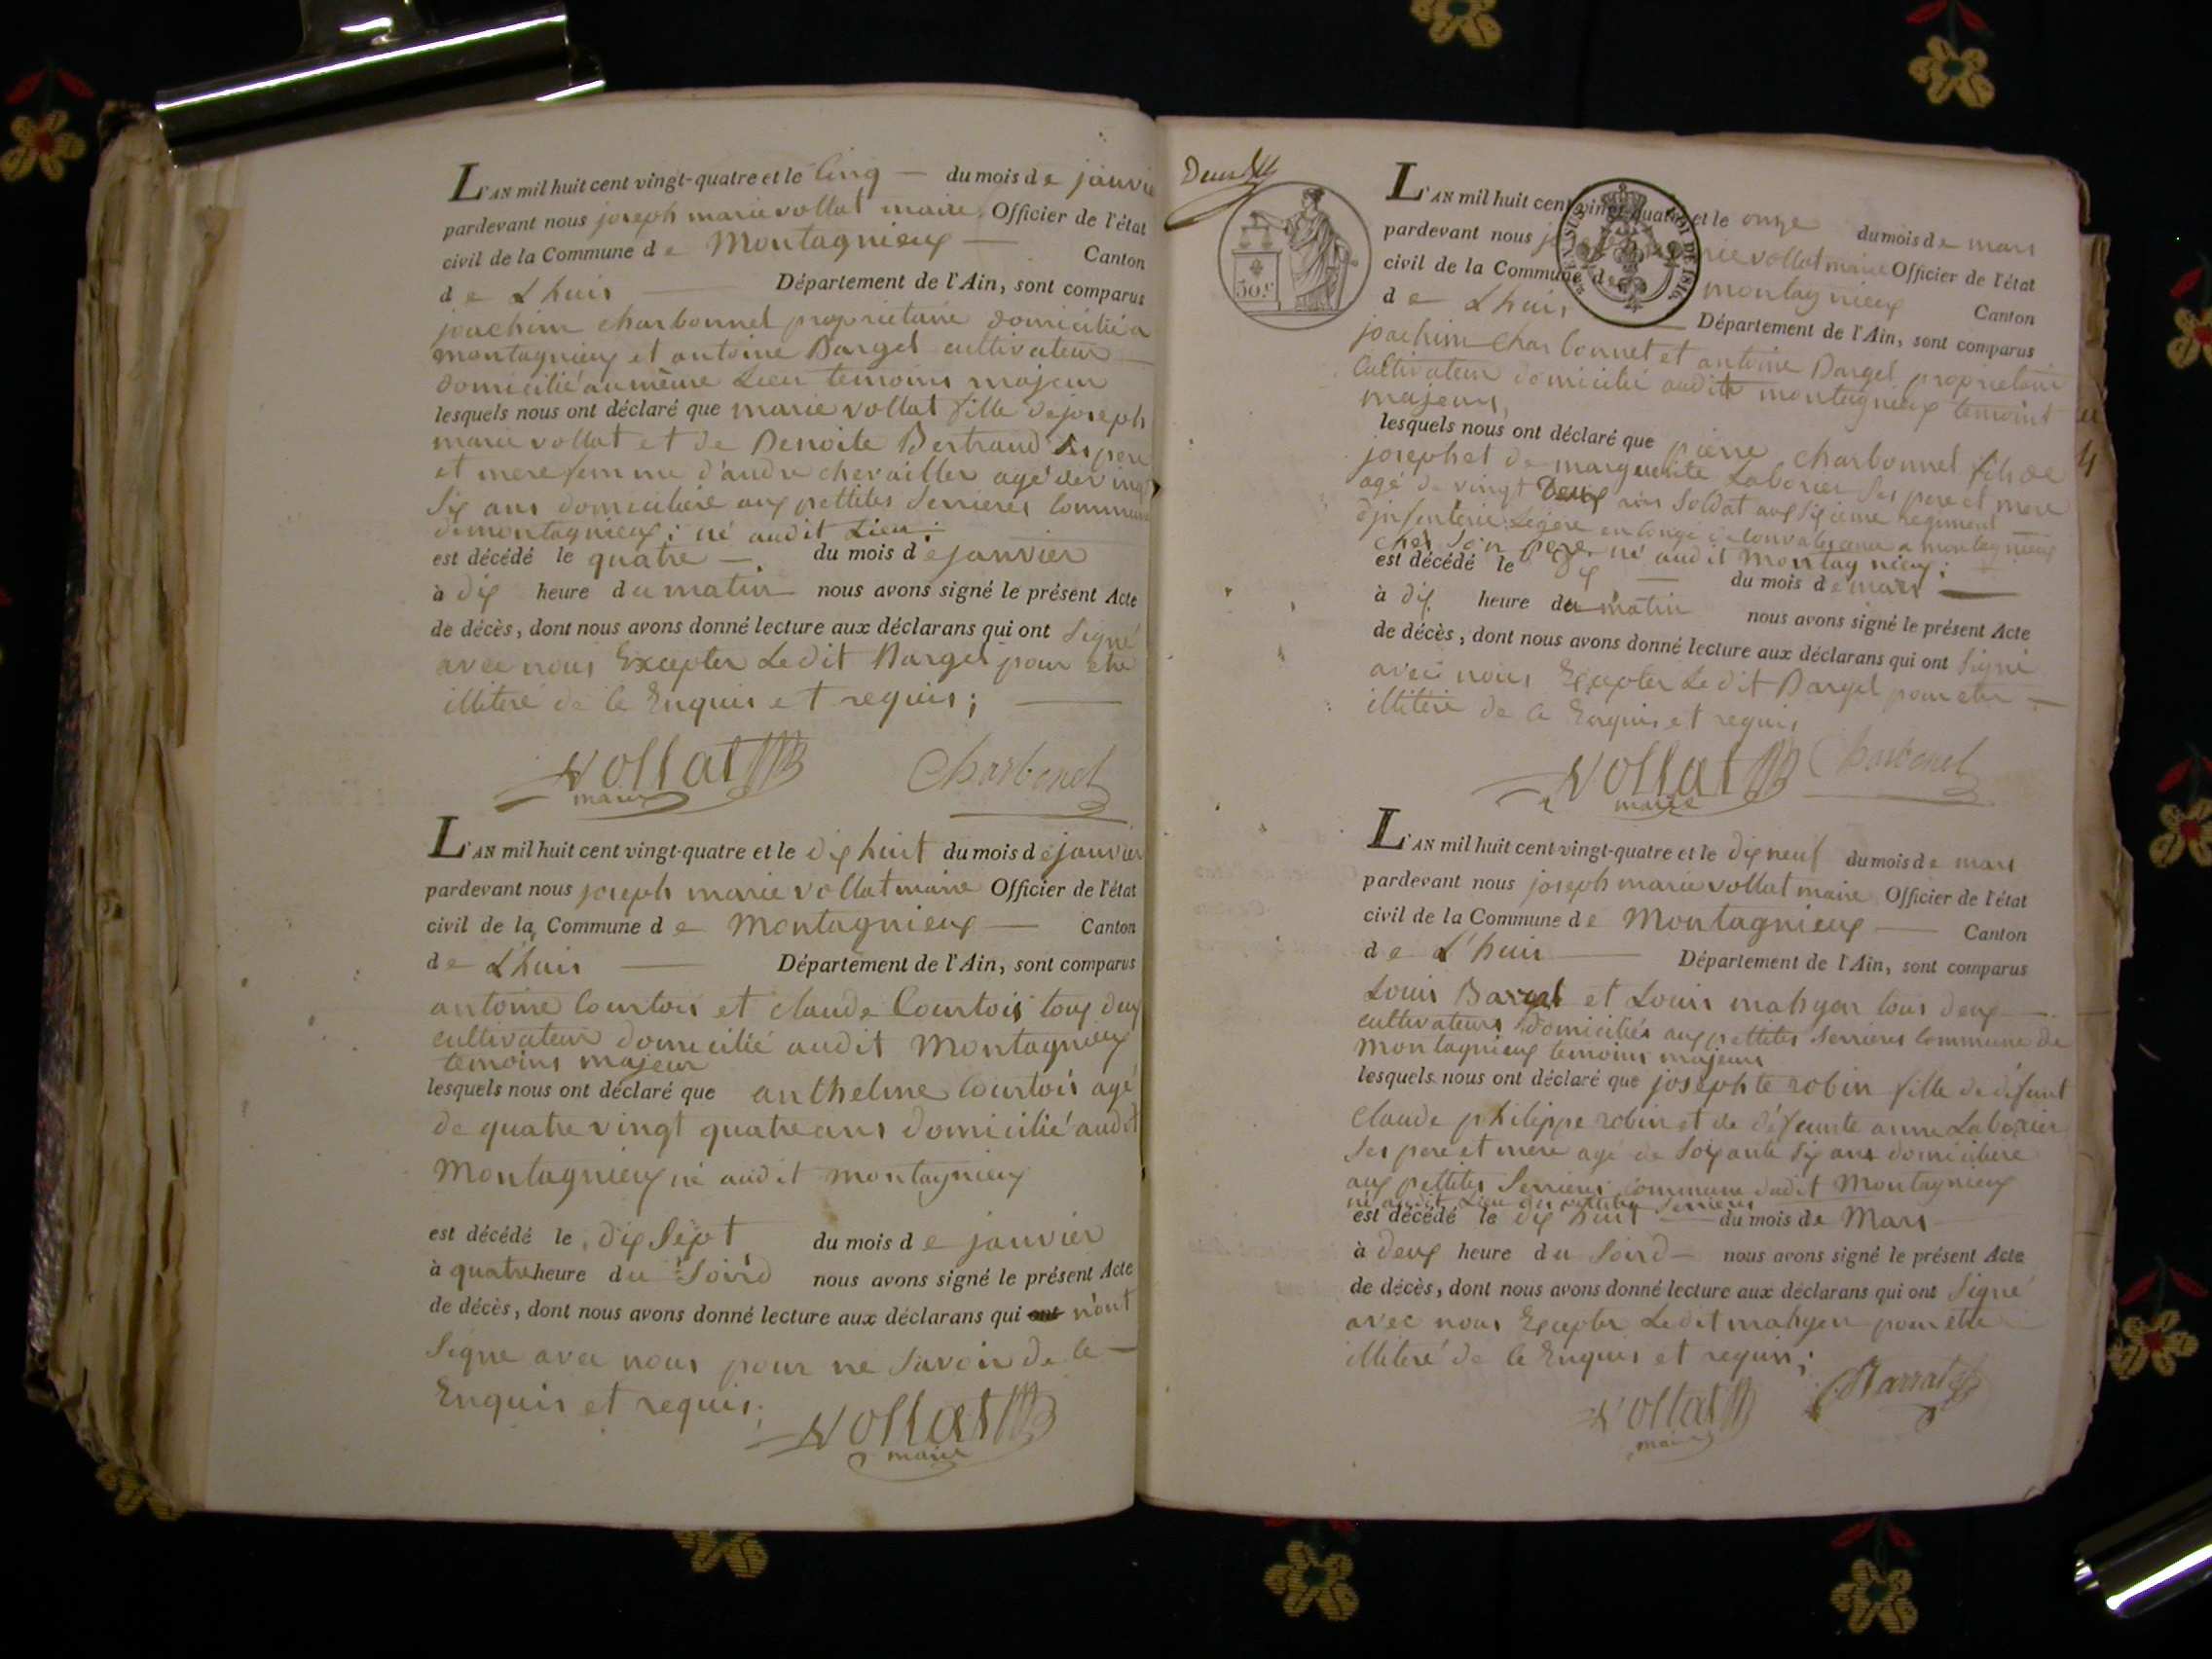 L'AN mil huit cent vingt-quatre et le Cinq — du mois de janvie
pardevant nous joseph marie vollat maire Officier de l'état
civil de la Commune de Montagnieux — Canton
de Lhuis — Département de l'Ain, sont comparus
joachim charbonnel proprietaire domicilié a
montagnieux et antoine Dargel cultivateur
domicilié au même Lieu temoins majeur
lesquels nous ont déclaré que marie vollat fille de joseph
marie vollat et de Benoite Bertrand ses pere
et mere femme d'andre chevailler agé de ving
six ans domiciliere aux pettites Serrieres Commune
de montagnieux; né audit Lieu;
est décédé le quatre — du mois de janvier
à dix heure du matin nous avons signé le présent Acte
de décès, dont nous avons donné lecture aux déclarans qui ont Signé
avec nous Excepter Ledit Dargel pour etre
illiteré de ce Enquis et requis; —
Vollat
maire
Charbonel
L'AN mil huit cent vingt-quatre et le dix huit du mois de janvier
pardevant nous joseph marie vollat maire Officier de l'état
civil de la Commune de Montagnieux — Canton
de L'huis — Département de l'Ain, sont comparus
antoine Courtois et claude Courtois tous deux
cultivateur domicilié audit Montagnieux
temoins majeur
lesquels nous ont déclaré que anthelme Courtois agé
de quatre vingt quatre ans domicilié audit
Montagnieux né audit montagnieux
est décédé le dix Sept du mois de janvier
à quatre heure du Soird nous avons signé le présent Acte
de décès, dont nous avons donné lecture aux déclarans qui ont n'ont
Signe avec nous pour ne Savoir de ce —
Enquis et requis;
Vollat
maire
50 c.
LOI DE 1816
L'AN mil huit cent vingt-quatre et le onze du mois de mars
pardevant nous joseph marie vollat maire Officier de l'état
civil de la Commune de montagnieux Canton
de Lhuis — Département de l'Ain, sont comparus
joachim charbonnel et antoine Dargel proprietaire
Cultivateur domicilié audit montagnieux temoins
majeurs,
lesquels nous ont déclaré que pierre charbonnel fils de
joseph et de marguerite Laborier Ses pere et mere
agé de vingt Deux ans Soldat aux Sixieme regiment
d'infenterie Legere en congé de convalesence a montagnieux
chez Son pere, né audit Montagnieux;
est décédé le Dix — du mois de mars —
à dix heure du matin nous avons signé le présent Acte
de décès, dont nous avons donné lecture aux déclarans qui ont Signé
avec nous Excepter Ledit Dargel pour etre —
illiteré de ce Enquis et requis
Vollat
maire
Charbonel
L'AN mil huit cent vingt-quatre et le dix neuf du mois de mars
pardevant nous joseph marie vollat maire Officier de l'état
civil de la Commune de Montagnieux — Canton
de L'huis — Département de l'Ain, sont comparus
Louis Barrat et Louis mahyer tous deux —
cultivateurs domiciliés aux pettites Serrieres Commune de
Montagnieux temoins majeurs
lesquels nous ont déclaré que josephte robin fille de défunt
Claude philippe robin et de défunte anne Laborier
Ses pere et mere agé de Soixante Six ans domiciliere
aux pettites Serrieres commune dudit Montagnieux
né audit Lieu des pettites Serrieres
est décédé le dix huit — du mois de Mars
à deux heure du Soird — nous avons signé le présent Acte
de décès, dont nous avons donné lecture aux déclarans qui ont Signé
avec nous Excepter Ledit mahyer pour etre
illiteré de ce Enquis et requis;
Vollat
maire
Barrat